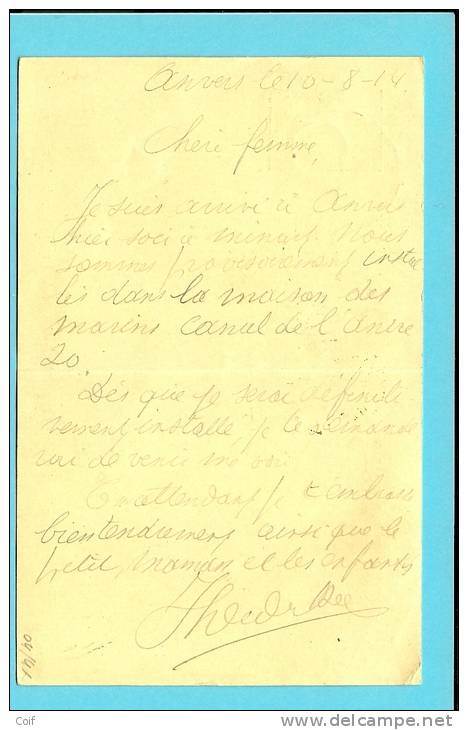 Anvers le 10-8-14
Chere femme,
Je suis arrivé à Anvers
hier soir à minuit Nous
sommes provisoirement instal
lés dans la maison des
marins canal de l'Ancre
20.
Dès que je serai définiti
vement installé je te demande
rai de venir me voir
En attendant je t'embrasse
bien tendrement ainsi que le
petit, maman et les enfants
Coif
www.delcampe.net